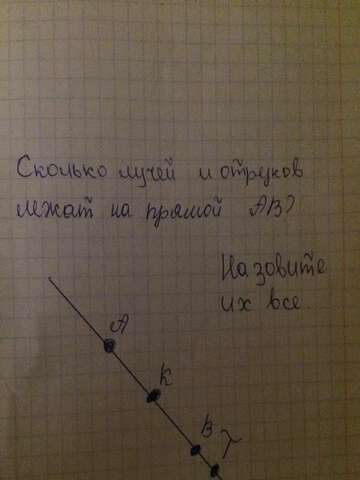 Сколько лучей и отрезков
лежат на прямой АВ?
Назовите
их все.
А
К
В